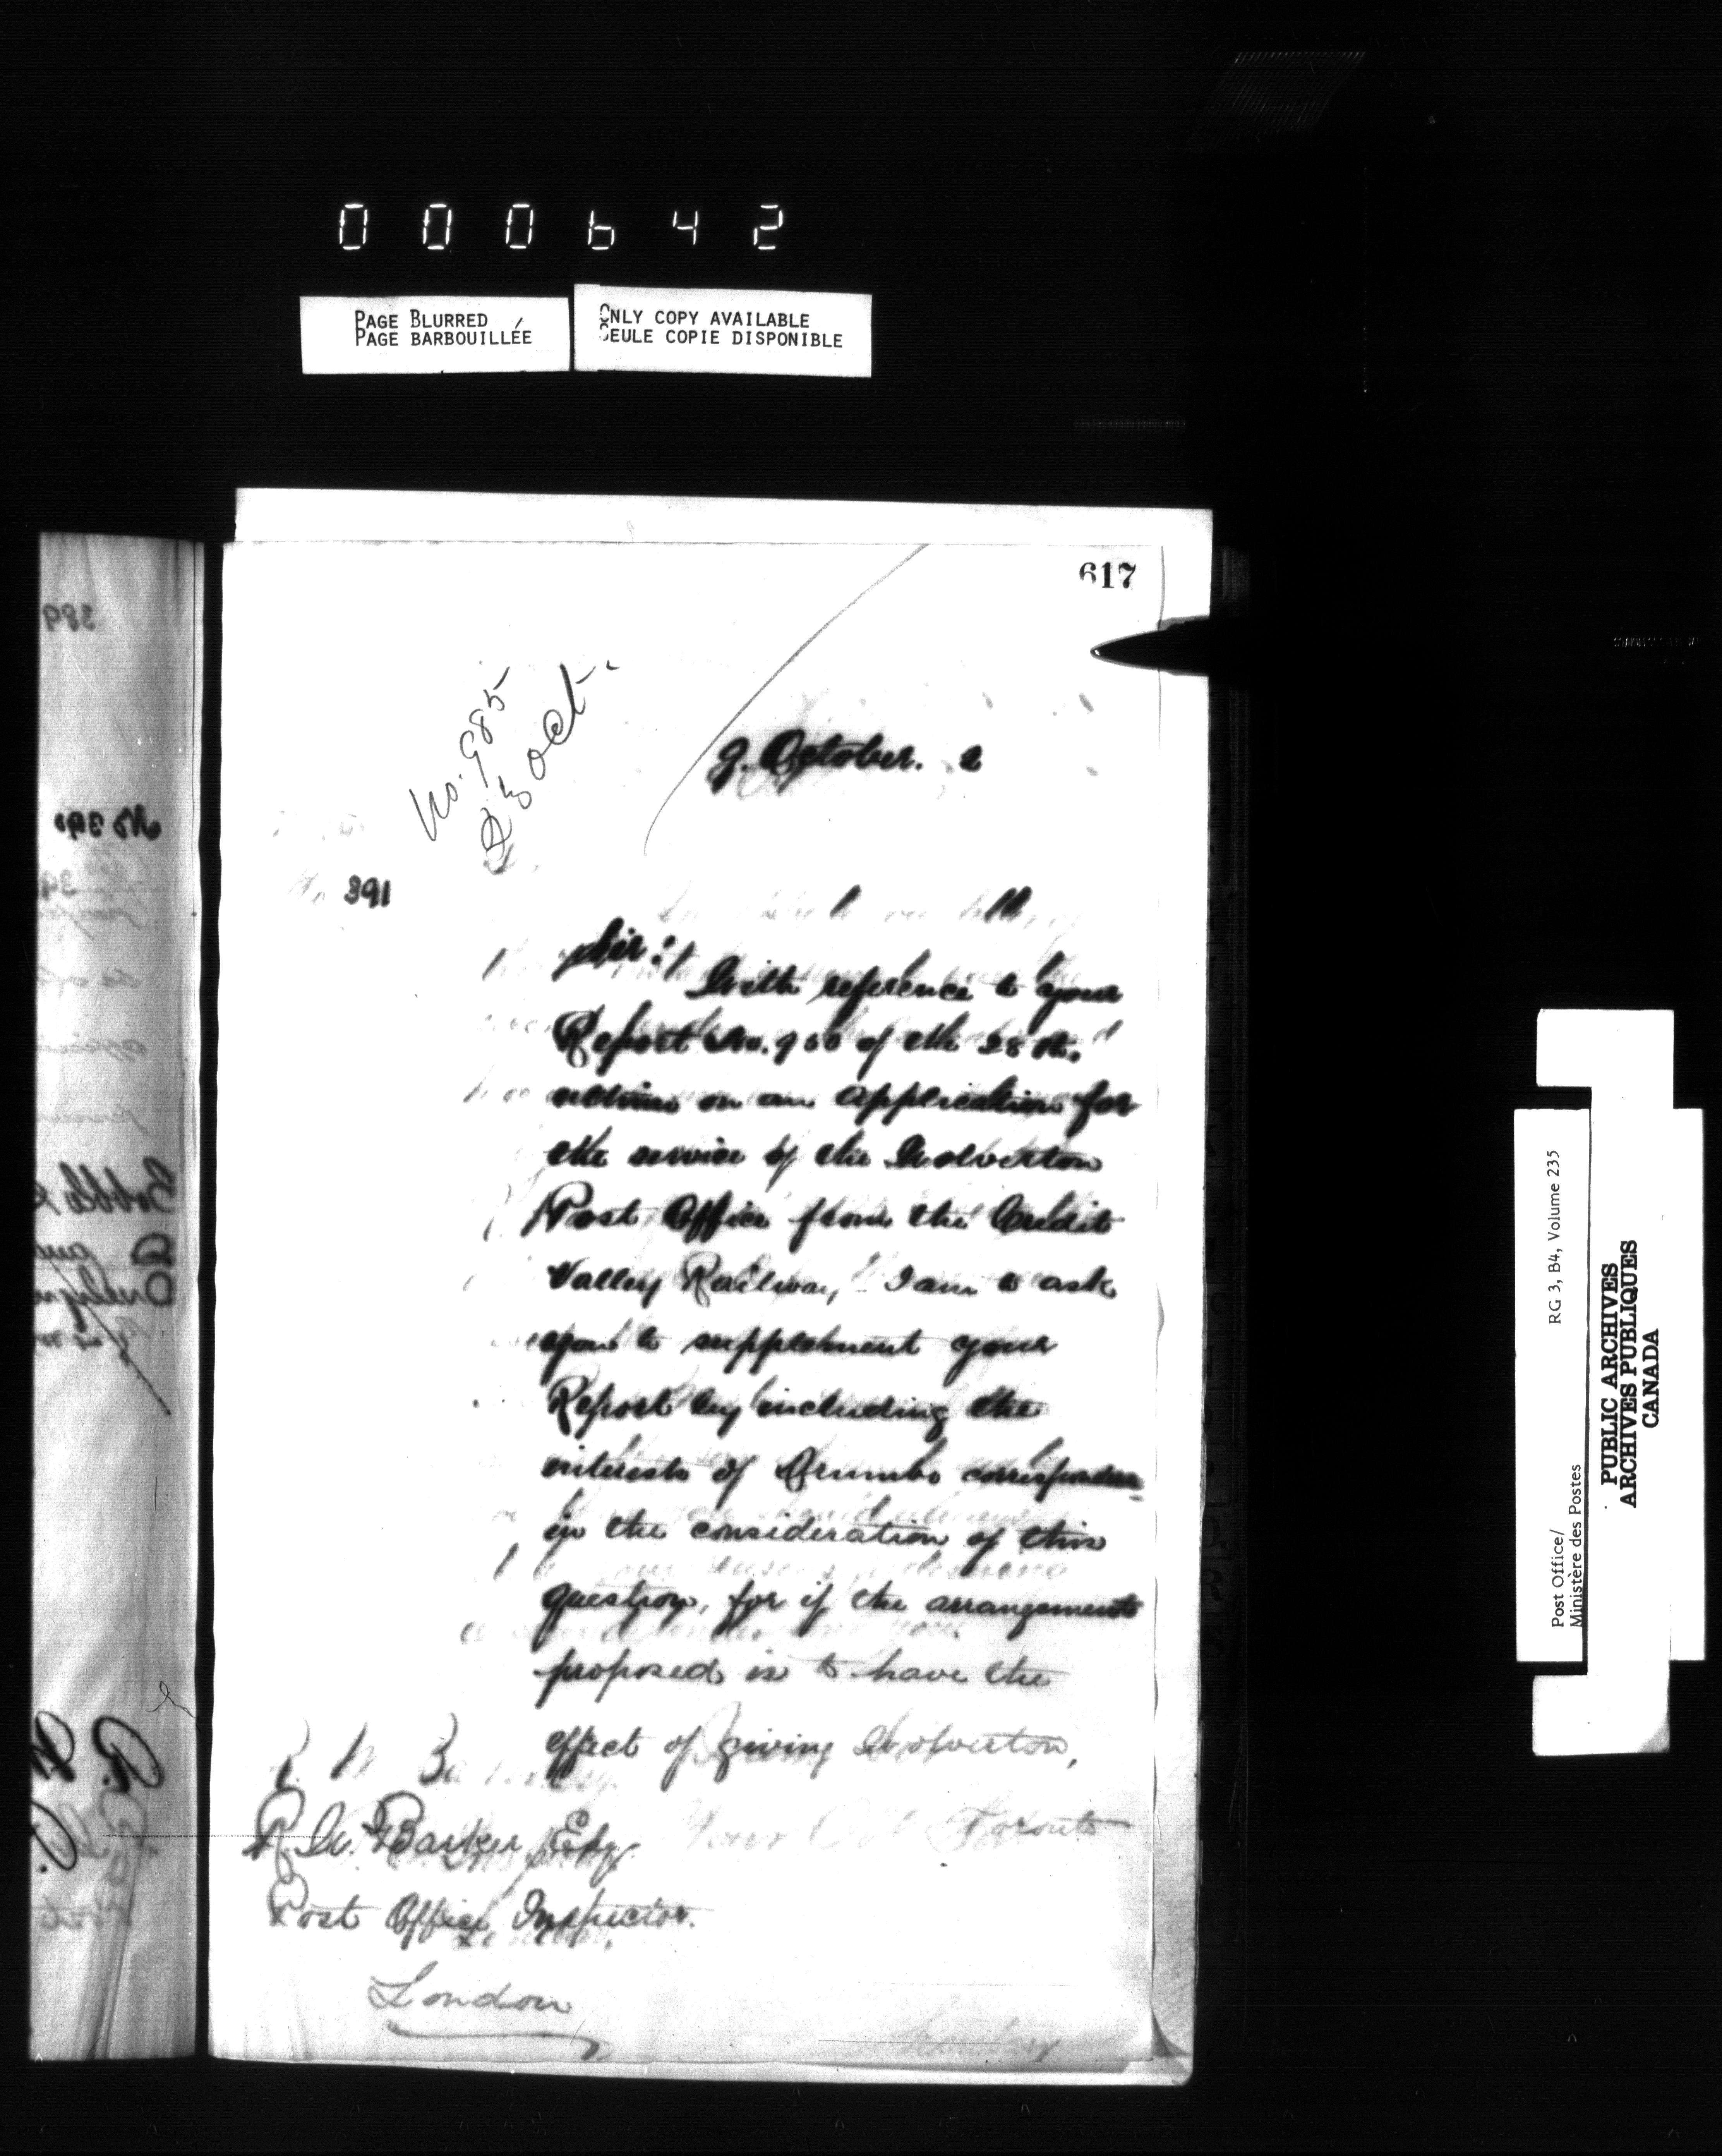 000642
PAGE BLURRED
PAGE BARBOUILLÉE
ONLY COPY AVAILABLE
SEULE COPIE DISPONIBLE
617
No. 985
23 Oct.
9. October. 2
391
Sir:
With reference to your
Report No. 950 of the 28th.
ultimo on an application for
the service of the Wolverton
Post Office from the Credit
Valley Railway I am to ask
you to supplement your
Report by including the
interests of Drumbo correspondence
in the consideration of this
question, for if the arrangements
proposed is to have the
effect of giving Wolverton,
R. W. Barker, Esq.
Post Office Inspector.
London
RG 3, B4, Volume 235
Post Office/
Ministère des Postes
PUBLIC ARCHIVES
ARCHIVES PUBLIQUES
CANADA